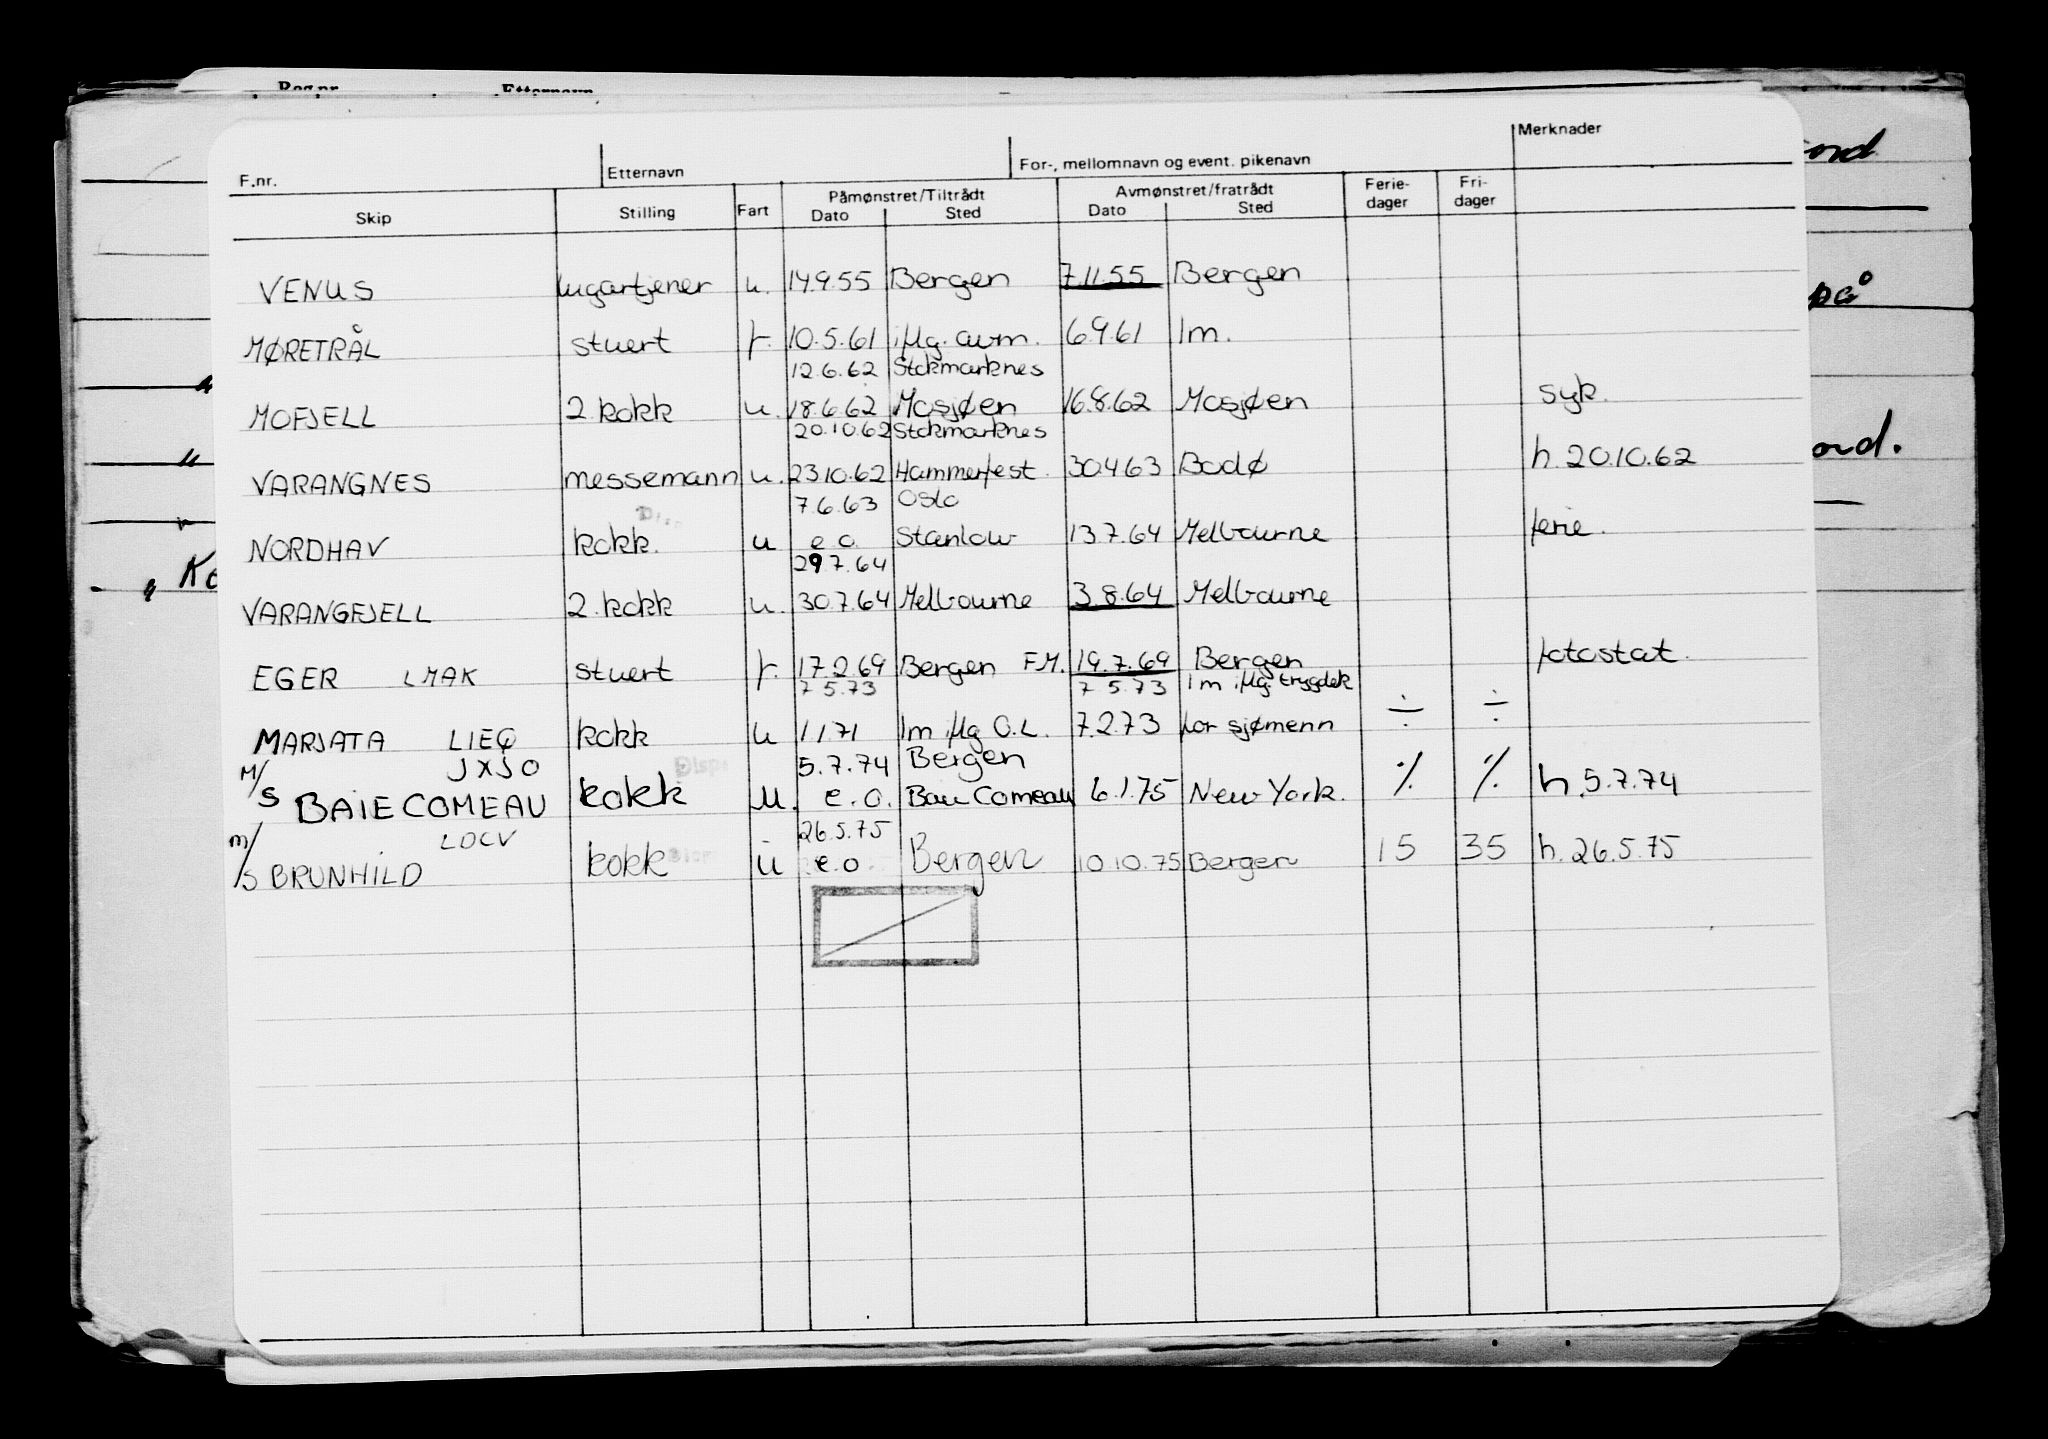 Reg.nr. Etternavn
F.nr. Etternavn For-, mellomnavn og event. pikenavn Merknader
Skip Stilling Fart Påmønstret/Tiltrådt Dato Sted Avmønstret/fratrådt Dato Sted Ferie-dager Fri-dager
VENUS lugartjener u. 14.9.55 Bergen 7.11.55 Bergen
MØRETRÅL stuert f. 10.5.61 iflg. avm. 6.9.61 Im.
12.6.62 Stokmarknes
MOFJELL 2. kokk u. 18.6.62 Mosjøen 16.8.62 Mosjøen syk.
20.10.62 Stokmarknes
VARANGNES messemann u. 23.10.62 Hammerfest. 30.4.63 Bodø h. 20.10.62
7.6.63 Oslo
NORDHAV kokk. u e.o. Stanlow 13.7.64 Melbourne ferie.
29.7.64
VARANGFJELL 2. kokk u. 30.7.64 Melbourne 3.8.64 Melbourne
EGER LMAK stuert f. 17.2.69 Bergen F.M. 19.7.69 Bergen fotostat.
7.5.73 7.5.73 Im iflg. trygdek
MARJATA LIEQ kokk u 1.1.71 Im iflg O.L. 7.2.73 for sjømenn ÷ ÷
JXJO 5.7.74 Bergen
M/S BAIE COMEAU kokk u. e.o. Baie Comeau 6.1.75 New York. % % h. 5.7.74
LOCV 26.5.75
m/s BRUNHILD kokk u e.o. Bergen 10.10.75 Bergen 15 35 h. 26.5.75